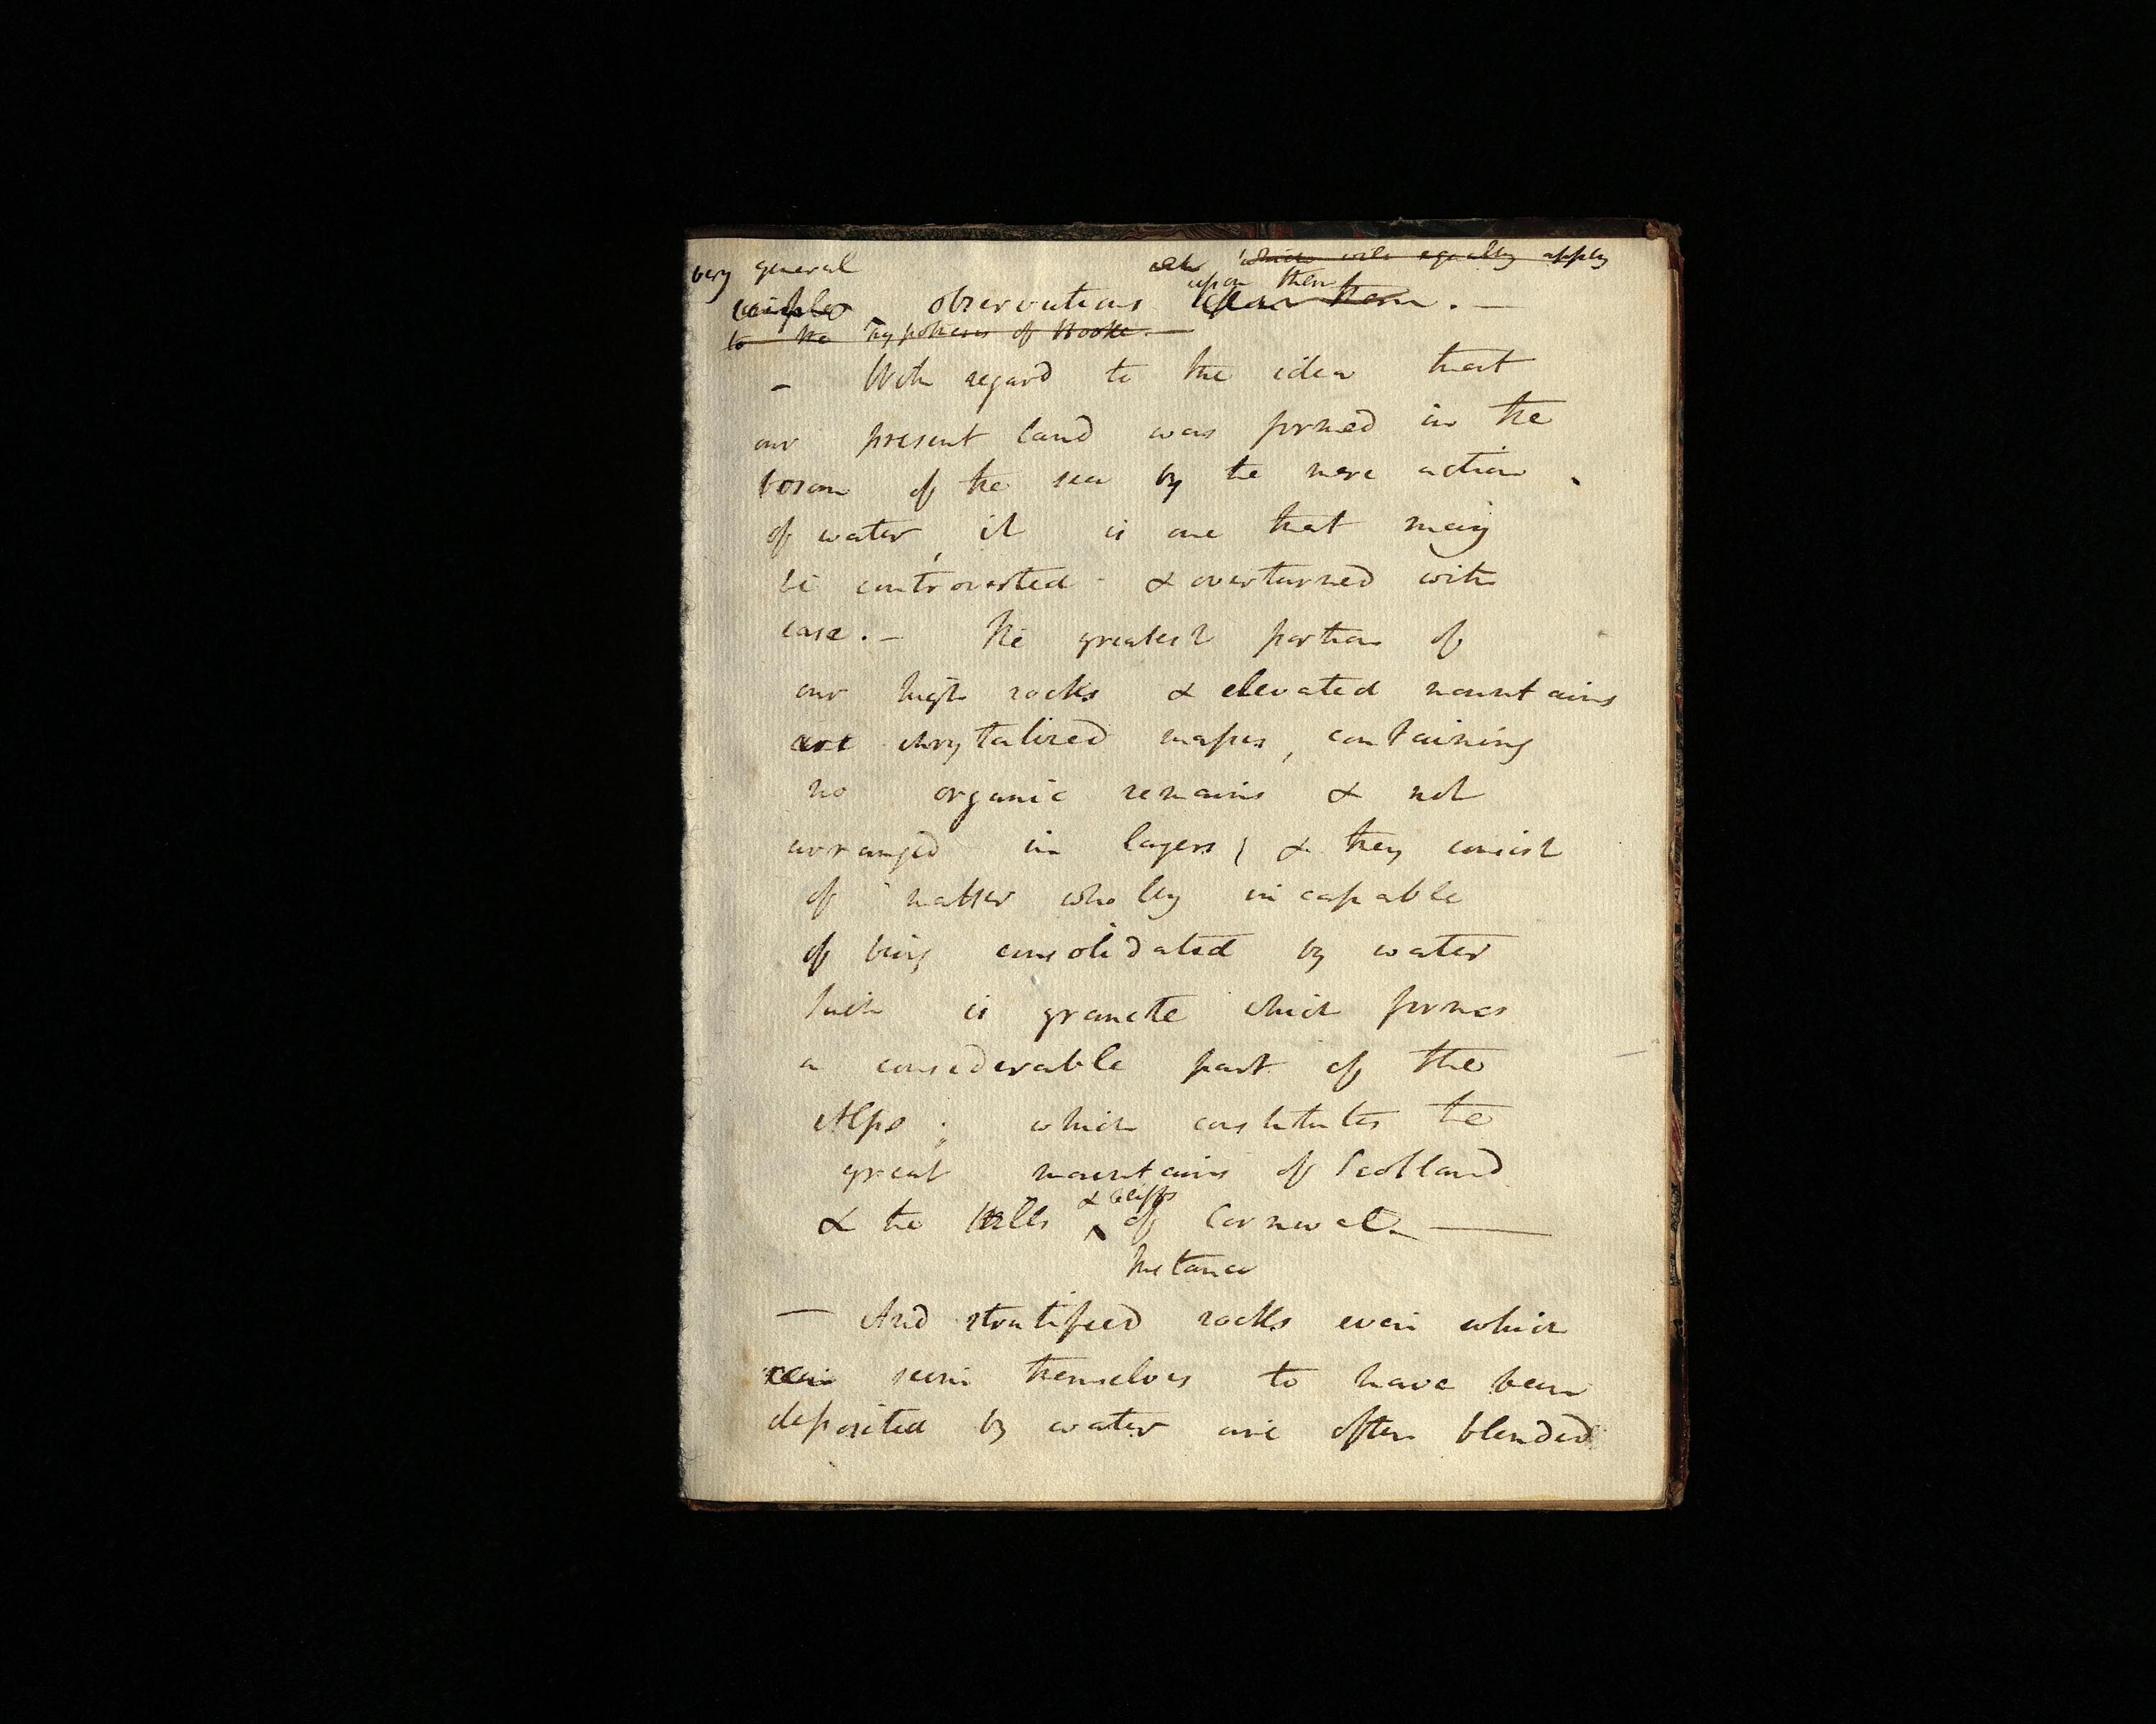 very general which will equally apply
simple observations upon them. —
to the hypothesis of Hooke. —
– With regard to the idea that
our present land was formed in the
bosom of the sea by the mere action
of water, it is one that may
be controverted & overturned with
ease. – The greatest portion of
our high rocks & elevated mountains
are chrystalized masses, containing
no organic remains & not
arranged in layers; & they consist
of matter wholly incapable
of being consolidated by water
Such is granite which forms
a considerable part of the
Alps; which constitutes the
great mountains of Scotland
& cliffs
& the Hills ^ of Cornwall. —
Instance
— And stratified rocks even which
seem themselves to have been
deposited by water are often blended